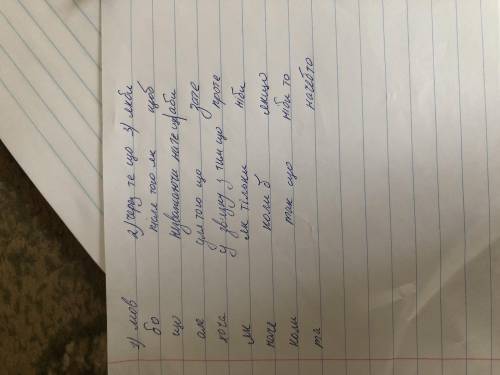 1) мов 2) через те що 3) якби
бо після того як щоб
що незважаючи на те що аби
але для того що зате
хоча у звязку з тим що проте
як як тільки ніби
наче коли б якщо
коли так що ніби то
та начебто